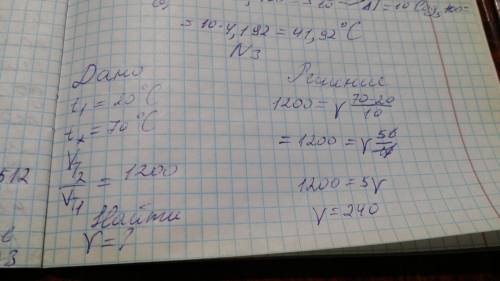 = 10·4,192 = 41,92°C
N3
Дано
t₁ = 20°C
t₂ = 70°C
V₂/V₁ = 1200
Найти
γ = ?
Решение
1200 = γ (70-20)/10
= 1200 = γ 50/10
1200 = 5γ
γ = 240
512